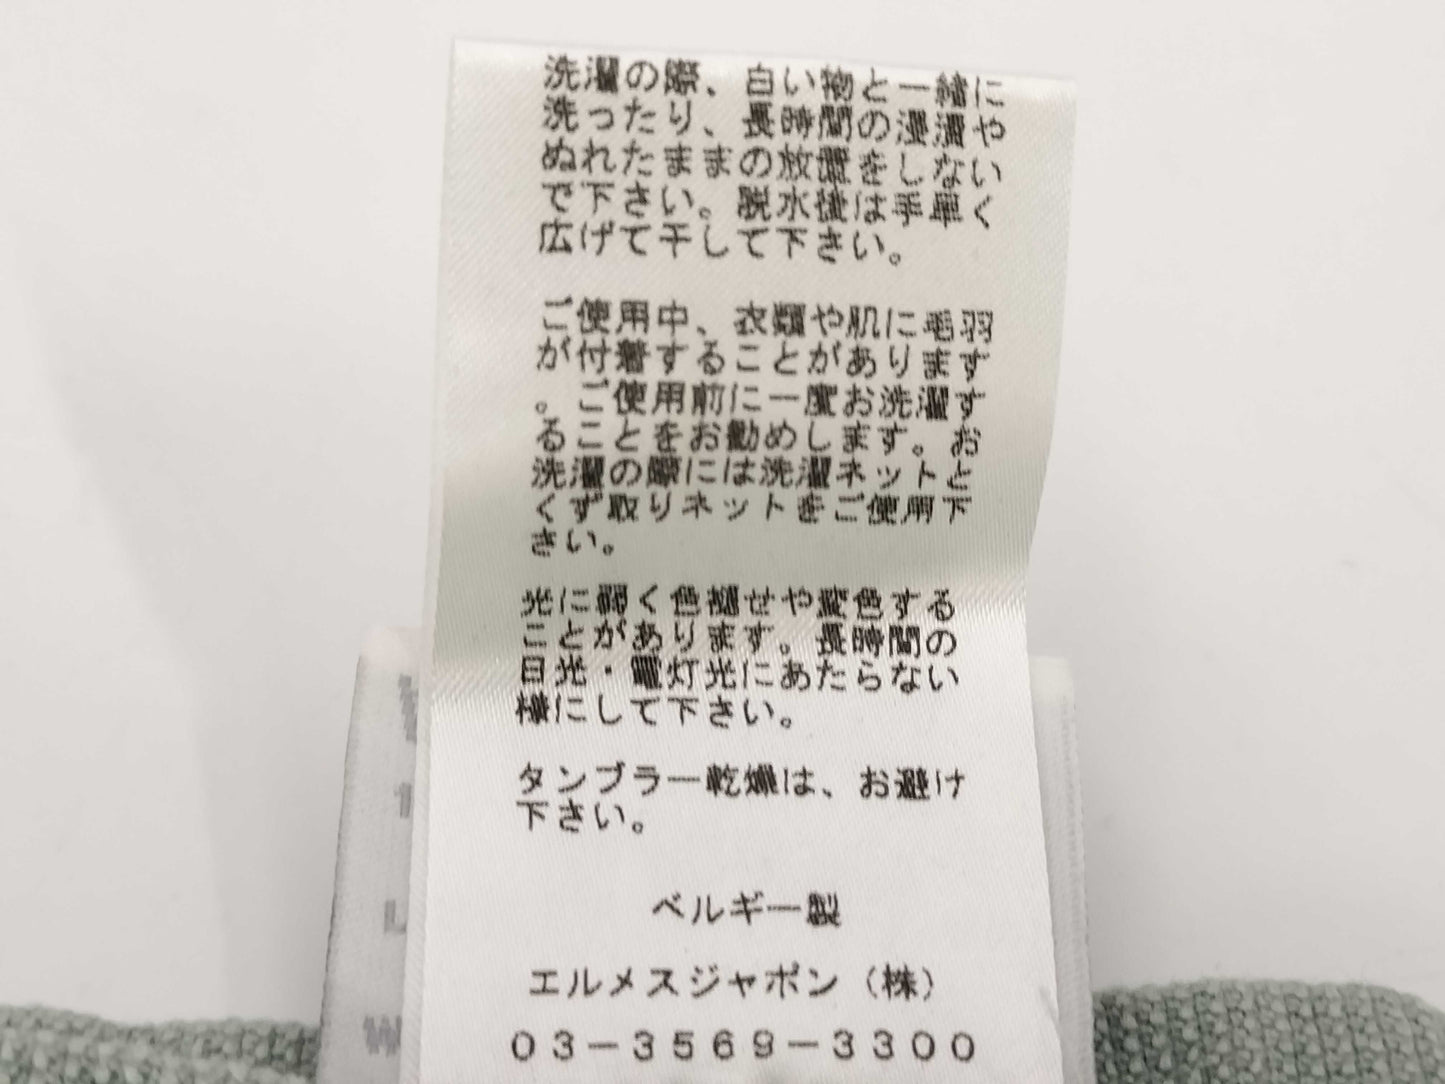 洗濯の際、白い物と一緒に
洗ったり、長時間の浸漬や
ぬれたままの放置をしない
で下さい。脱水後は手早く
広げて干して下さい。
ご使用中、衣類や肌に毛羽
が付着することがあります
。ご使用前に一度お洗濯す
ることをお勧めします。お
洗濯の際には洗濯ネットと
くず取りネットをご使用下
さい。
光に弱く色褪せや変色する
ことがあります。長時間の
日光・電灯光にあたらない
様にして下さい。
タンブラー乾燥は、お避け
下さい。
ベルギー製
エルメスジャポン（株）
03-3569-3300